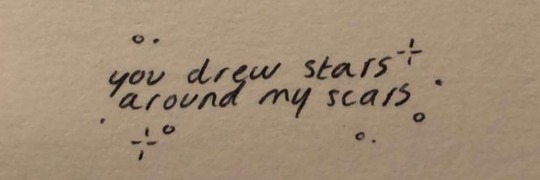 you drew stars
around my scars